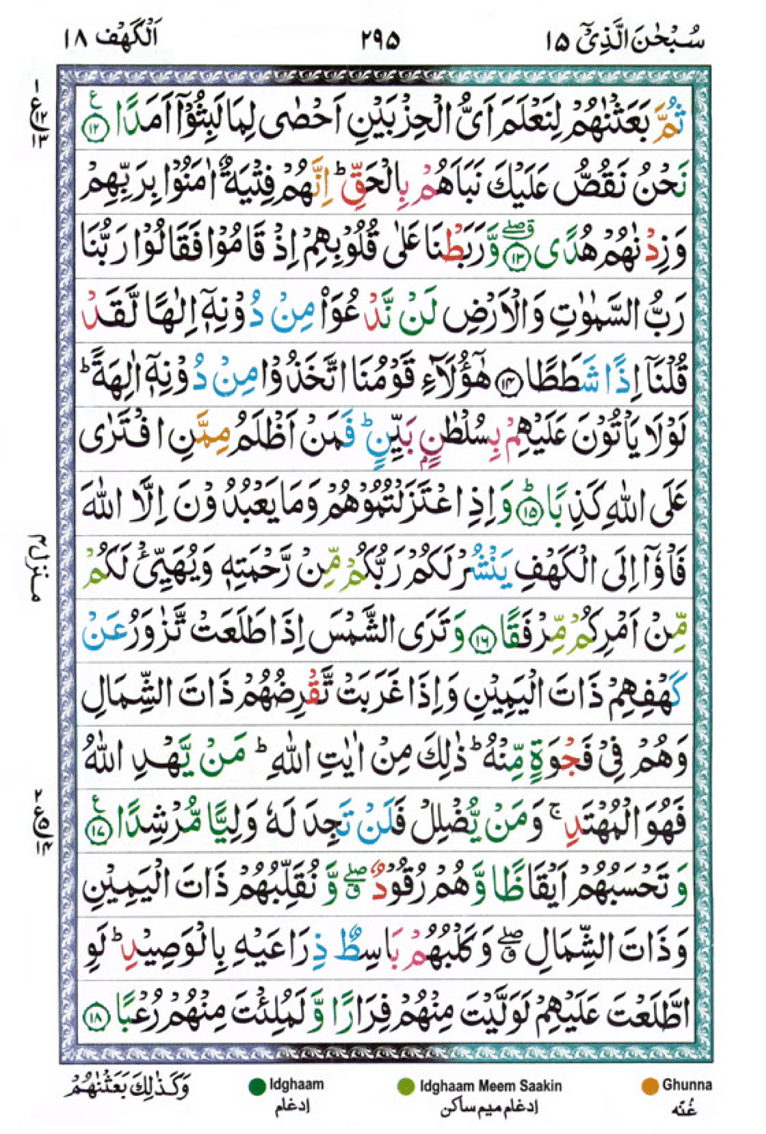 سُبْحٰنَ الَّذِیْۤ ۱۵
۲۹۵
اَلْكَهْف ۱۸
ثُمَّ بَعَثْنٰهُمْ لِنَعْلَمَ اَیُّ الْحِزْبَیْنِ اَحْصٰی لِمَا لَبِثُوْۤا اَمَدًا ۱۲ ع
نَحْنُ نَقُصُّ عَلَیْكَ نَبَاَهُمْ بِالْحَقِّ ؕ اِنَّهُمْ فِتْیَةٌ اٰمَنُوْا بِرَبِّهِمْ
وَزِدْنٰهُمْ هُدًی ۱۳ۖۗ وَّرَبَطْنَا عَلٰی قُلُوْبِهِمْ اِذْ قَامُوْا فَقَالُوْا رَبُّنَا
رَبُّ السَّمٰوٰتِ وَالْاَرْضِ لَنْ نَّدْعُوَا۠ مِنْ دُوْنِهٖۤ اِلٰهًا لَّقَدْ
قُلْنَاۤ اِذًا شَطَطًا ۱۴ هٰۤؤُلَآءِ قَوْمُنَا اتَّخَذُوْا مِنْ دُوْنِهٖۤ اٰلِهَةً ؕ
لَوْلَا یَاْتُوْنَ عَلَیْهِمْ بِسُلْطٰنٍۭ بَیِّنٍ ؕ فَمَنْ اَظْلَمُ مِمَّنِ افْتَرٰی
عَلَی اللّٰهِ كَذِبًا ؕ ۱۵ وَاِذِ اعْتَزَلْتُمُوْهُمْ وَمَا یَعْبُدُوْنَ اِلَّا اللّٰهَ
فَاْوٗۤا اِلَی الْكَهْفِ یَنْشُرْ لَكُمْ رَبُّكُمْ مِّنْ رَّحْمَتِهٖ وَیُهَیِّئْ لَكُمْ
مِّنْ اَمْرِكُمْ مِّرْفَقًا ۱۶ وَتَرَی الشَّمْسَ اِذَا طَلَعَتْ تَّزٰوَرُ عَنْ
كَهْفِهِمْ ذَاتَ الْیَمِیْنِ وَاِذَا غَرَبَتْ تَّقْرِضُهُمْ ذَاتَ الشِّمَالِ
وَهُمْ فِیْ فَجْوَةٍ مِّنْهُ ؕ ذٰلِكَ مِنْ اٰیٰتِ اللّٰهِ ؕ مَنْ یَّهْدِ اللّٰهُ
فَهُوَ الْمُهْتَدِ ۚ وَمَنْ یُّضْلِلْ فَلَنْ تَجِدَ لَهٗ وَلِیًّا مُّرْشِدًا ۱۷ ع
وَتَحْسَبُهُمْ اَیْقَاظًا وَّهُمْ رُقُوْدٌ ۖۗ وَّنُقَلِّبُهُمْ ذَاتَ الْیَمِیْنِ
وَذَاتَ الشِّمَالِ ۖۗ وَكَلْبُهُمْ بَاسِطٌ ذِرَاعَیْهِ بِالْوَصِیْدِ ؕ لَوِ
اطَّلَعْتَ عَلَیْهِمْ لَوَلَّیْتَ مِنْهُمْ فِرَارًا وَّلَمُلِئْتَ مِنْهُمْ رُعْبًا ۱۸
۱
ع ۱۲
۱۳
منزل ۴
۲
ع ۵
۱۴
وَكَذٰلِكَ بَعَثْنٰهُمْ
Idghaam
ادغام
Idghaam Meem Saakin
ادغام میم ساکن
Ghunna
غُنّه